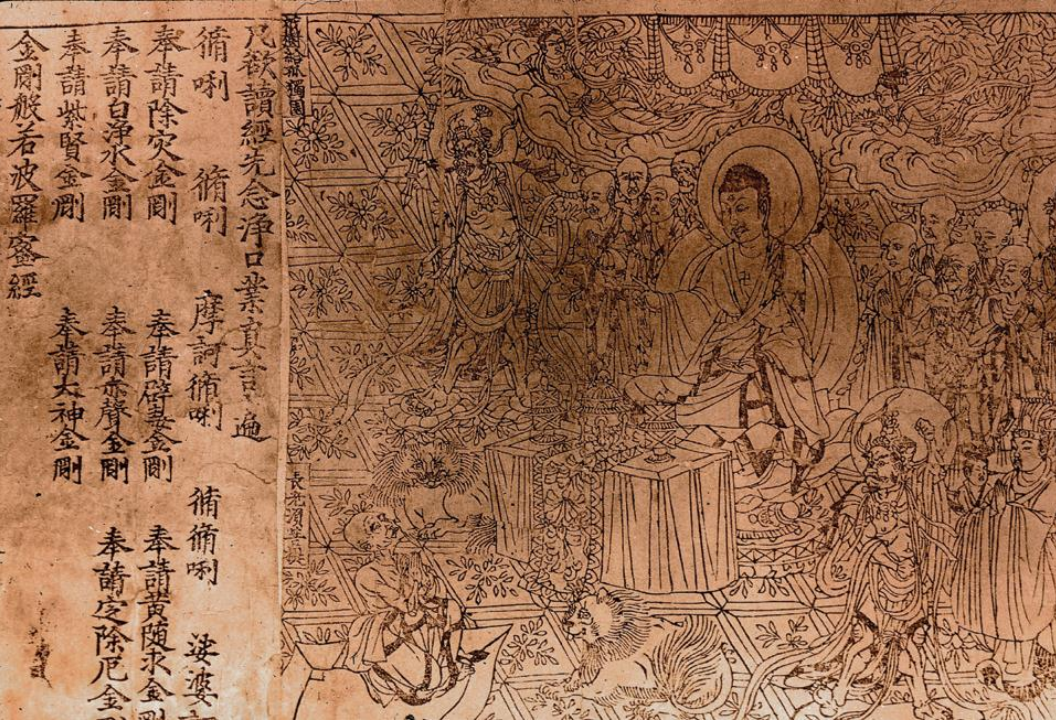 祇樹給孤獨園
長老須菩提
凡欲讀經先念淨口業真言一遍
脩唎 脩唎 摩訶脩唎 脩脩唎 娑婆
奉請除灾金剛 奉請辟毒金剛 奉請黃随求金剛
奉請白淨水金剛 奉請赤聲金剛 奉請定除厄金
奉請紫賢金剛 奉請大神金剛
金剛般若波羅蜜經